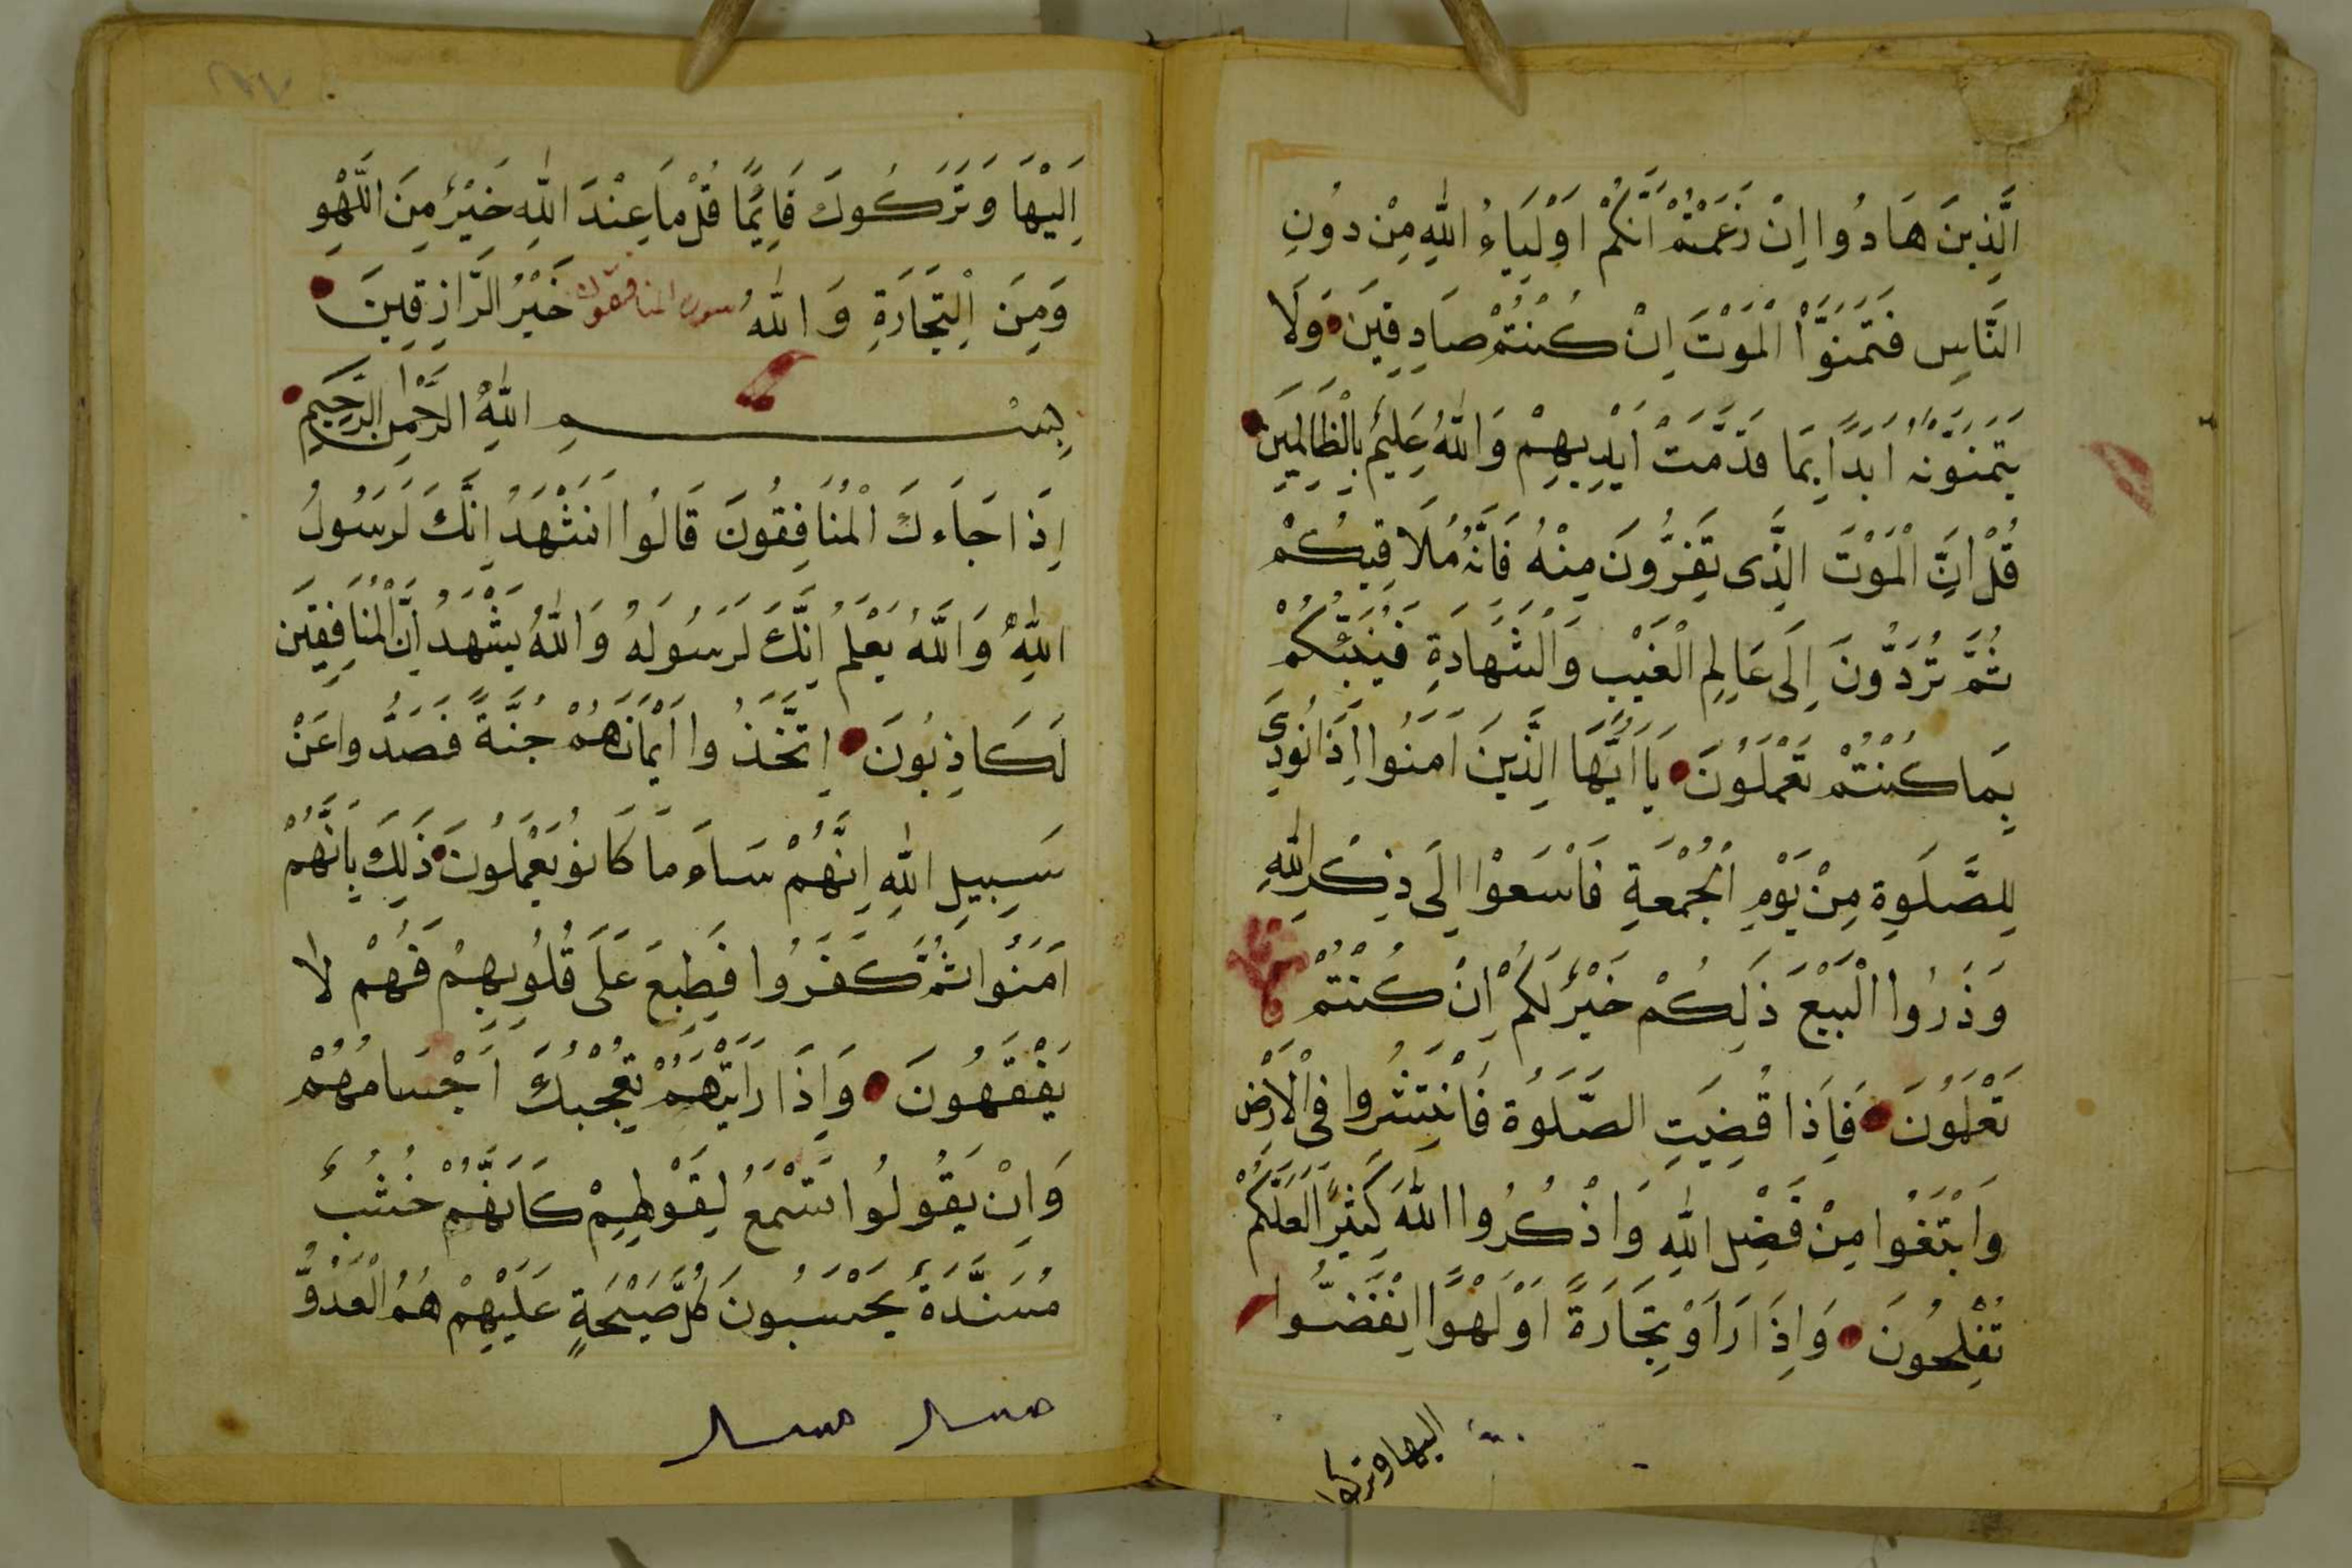 الَّذِينَ هَادُوا اِنْ زَعَمْتُمْ اَنَّكُمْ اَوْلِيَاءُ اللّٰهِ مِنْ دُونِ
النَّاسِ فَتَمَنَّوُا الْمَوْتَ اِنْ كُنْتُمْ صَادِقِينَ وَلَا
يَتَمَنَّوْنَهُ اَبَدًا بِمَا قَدَّمَتْ اَيْدِيهِمْ وَاللّٰهُ عَلِيمٌ بِالْظَالِمِينَ
قُلْ اِنَّ الْمَوْتَ الَّذِى تَفِرُّونَ مِنْهُ فَاِنَّهُ مُلَاقِيكُمْ
ثُمَّ تُرَدُّونَ اِلَى عَالِمِ الْغَيْبِ وَالْشَهَادَةِ فَيُنَبِّئُكُمْ
بِمَا كُنْتُمْ تَعْمَلُونَ يَا اَيُّهَا الَّذِينَ اٰمَنُوا اِذَا نُودِىَ
لِلصَّلَوةِ مِنْ يَوْمِ الْجُمْعَةِ فَاسْعَوْا اِلَى ذِكْرِ اللّٰهِ
وَذَرُوا الْبَيْعَ ذَلِكُمْ خَيْرٌ لَكُمْ اِنْ كُنْتُمْ
تَعْلَمُونَ فَاِذَا قُضِيَتِ الصَّلَوةُ فَانْتَشِرُوا فِى الْاَرْضِ
وَابْتَغُوا مِنْ فَضْلِ اللّٰهِ وَاذْكُرُوا اللّٰهَ كَثِيرًا لَعَلَّكُمْ
تُفْلِحُونَ وَاِذَا رَاَوْ تِجَارَةً اَوْ لَهْوًا انْفَضُّوا
اليها وتركو
اِلَيْهَا وَتَرَكُوكَ قَايِمًا قُلْ مَا عِنْدَ اللّٰهِ خَيْرٌ مِنَ اللَّهْوِ
وَمِنَ الْتِجَارَةِ وَاللّٰهُ خَيْرُ الرَّازِقِينَ
سورة المنافقون
بِسْمِ اللّٰهِ الرَّحْمٰنِ الرَّحِيمِ
اِذَا جَاءَكَ الْمُنَافِقُونَ قَالُوا نَشْهَدُ اِنَّكَ لَرَسُولُ
اللّٰهِ وَاللّٰهُ يَعْلَمُ اِنَّكَ لَرَسُولُهُ وَاللّٰهُ يَشْهَدُ اِنَّ الْمُنَافِقِينَ
لَكَاذِبُونَ اِتَّخَذُوا اَيْمَانَهُمْ جُنَّةً فَصَدُّوا عَنْ
سَبِيلِ اللّٰهِ اِنَّهُمْ سَاءَ مَا كَانُو يَعْمَلُونَ ذَلِكَ بِاَنَّهُمْ
اٰمَنُوا ثُمَّ كَفَرُوا فَطُبِعَ عَلَى قُلُوبِهِمْ فَهُمْ لَا
يَفْقَهُونَ وَاِذَا رَاَيْتَهُمْ تُعْجِبُكَ اَجْسَامُهُمْ
وَاِنْ يَقُولُوا تَسْمَعُ لِقَوْلِهِمْ كَاَنَّهُمْ خُشُبٌ
مُسَنَّدَةٌ يَحْسَبُونَ كُلَّ صَيْحَةٍ عَلَيْهِمْ هُمُ الْعَدُوُّ